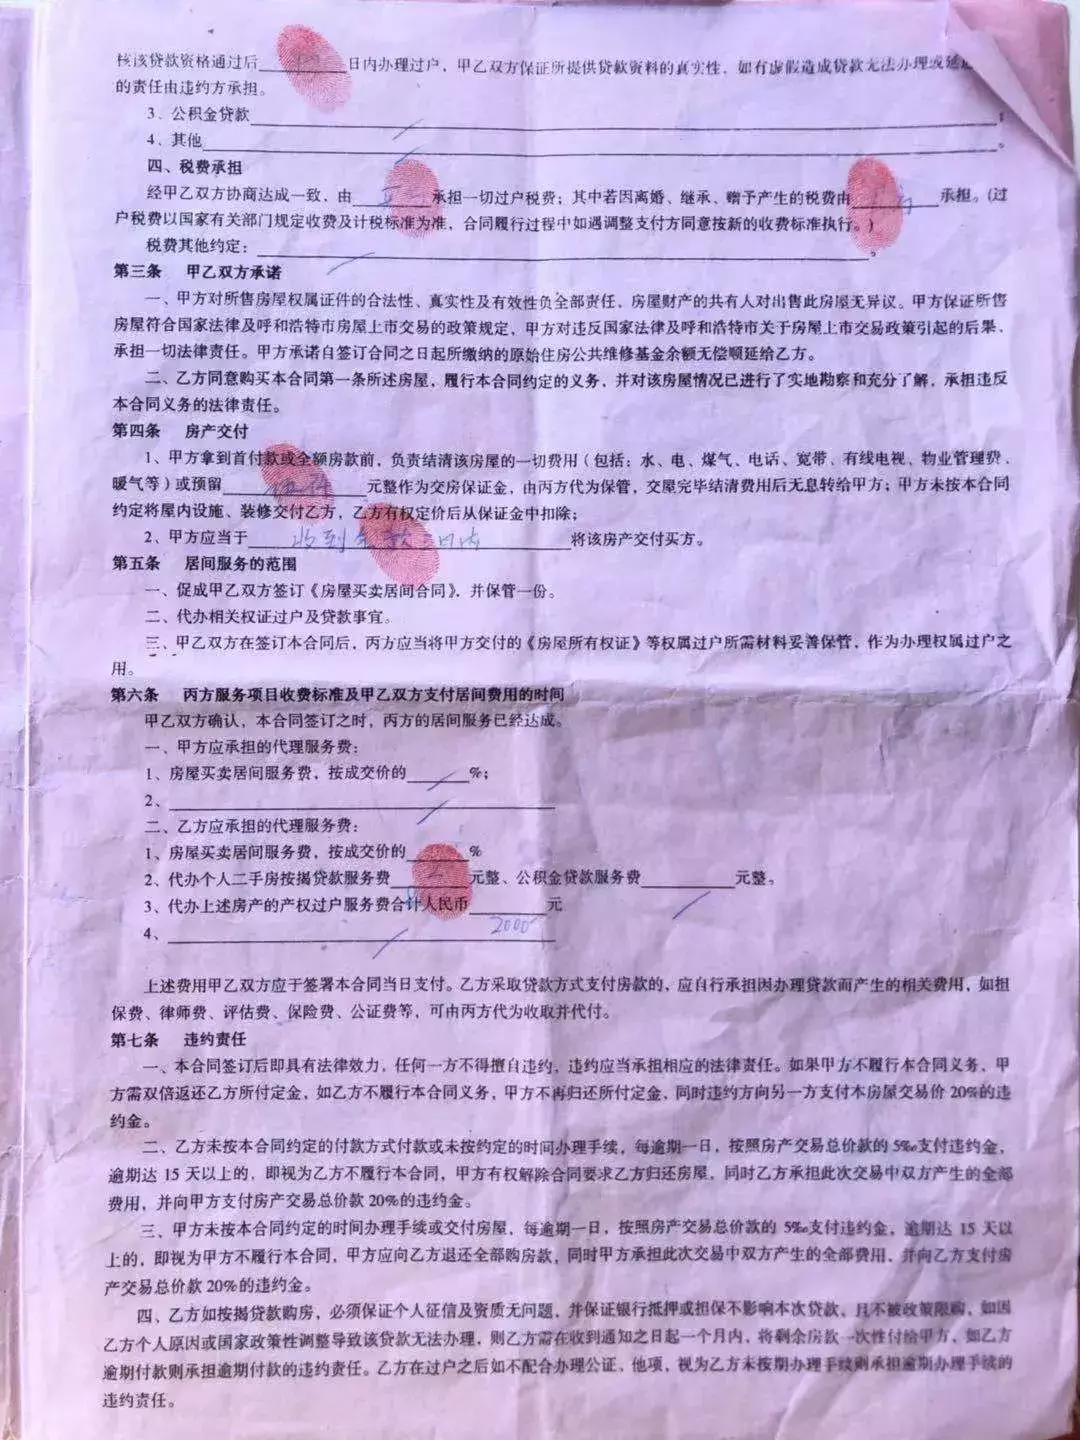 核该贷款资格通过后 日内办理过户，甲乙双方保证所提供贷款资料的真实性，如有虚假造成贷款无法办理或延
的责任由违约方承担。
3、公积金贷款 ；
4、其他 。
四、税费承担
经甲乙双方协商达成一致，由 承担一切过户税费；其中若因离婚、继承、赠予产生的税费由 承担。(过
户税费以国家有关部门规定收费及计税标准为准，合同履行过程中如遇调整支付方同意按新的收费标准执行。)
税费其他约定： 。
第三条 甲乙双方承诺
一、甲方对所售房屋权属证件的合法性、真实性及有效性负全部责任，房屋财产的共有人对出售此房屋无异议。甲方保证所售
房屋符合国家法律及呼和浩特市房屋上市交易的政策规定，甲方对违反国家法律及呼和浩特市关于房屋上市交易政策引起的后果、
承担一切法律责任。甲方承诺自签订合同之日起所缴纳的原始住房公共维修基金余额无偿顺延给乙方。
二、乙方同意购买本合同第一条所述房屋，履行本合同约定的义务，并对该房屋情况已进行了实地勘察和充分了解，承担违反
本合同义务的法律责任。
第四条 房产交付
1、甲方拿到首付款或全额房款前，负责结清该房屋的一切费用（包括：水、电、煤气、电话、宽带、有线电视、物业管理费、
暖气等）或预留 伍仟 元整作为交房保证金，由丙方代为保管，交屋完毕结清费用后无息转给甲方；甲方未按本合同
约定将屋内设施、装修交付乙方，乙方有权定价后从保证金中扣除；
2、甲方应当于 收到全款三日内 将该房产交付买方。
第五条 居间服务的范围
一、促成甲乙双方签订《房屋买卖居间合同》，并保管一份。
二、代办相关权证过户及贷款事宜。
三、甲乙双方在签订本合同后，丙方应当将甲方交付的《房屋所有权证》等权属过户所需材料妥善保管，作为办理权属过户之
用。
第六条 丙方服务项目收费标准及甲乙双方支付居间费用的时间
甲乙双方确认，本合同签订之时，丙方的居间服务已经达成。
一、甲方应承担的代理服务费：
1、房屋买卖居间服务费，按成交价的 %；
2、
二、乙方应承担的代理服务费：
1、房屋买卖居间服务费，按成交价的 %
2、代办个人二手房按揭贷款服务费 元整、公积金贷款服务费 元整。
3、代办上述房产的产权过户服务费合计人民币 2000 元
4、
上述费用甲乙双方应于签署本合同当日支付。乙方采取贷款方式支付房款的，应自行承担因办理贷款而产生的相关费用，如担
保费、律师费、评估费、保险费、公证费等，可由丙方代为收取并代付。
第七条 违约责任
一、本合同签订后即具有法律效力，任何一方不得擅自违约，违约应当承担相应的法律责任。如果甲方不履行本合同义务，甲
方需双倍返还乙方所付定金，如乙方不履行本合同义务，甲方不再归还所付定金，同时违约方向另一方支付本房屋交易价 20%的违
约金。
二、乙方未按本合同约定的付款方式付款或未按约定的时间办理手续，每逾期一日，按照房产交易总价款的 5‰支付违约金，
逾期达 15 天以上的，即视为乙方不履行本合同，甲方有权解除合同要求乙方归还房屋，同时乙方承担此次交易中双方产生的全部
费用，并向甲方支付房产交易总价款 20%的违约金。
三、甲方未按本合同约定的时间办理手续或交付房屋，每逾期一日，按照房产交易总价款的 5‰支付违约金，逾期达 15 天以
上的，即视为甲方不履行本合同，甲方应向乙方退还全部购房款，同时甲方承担此次交易中双方产生的全部费用，并向乙方支付房
产交易总价款 20%的违约金。
四、乙方如按揭贷款购房，必须保证个人征信及资质无问题，并保证银行抵押或担保不影响本次贷款，且不被政策限购，如因
乙方个人原因或国家政策性调整导致该贷款无法办理，则乙方需在收到通知之日起一个月内，将剩余房款一次性付给甲方，如乙方
逾期付款则承担逾期付款的违约责任。乙方在过户之后如不配合办理公证、他项，视为乙方未按期办理手续则承担逾期办理手续的
违约责任。